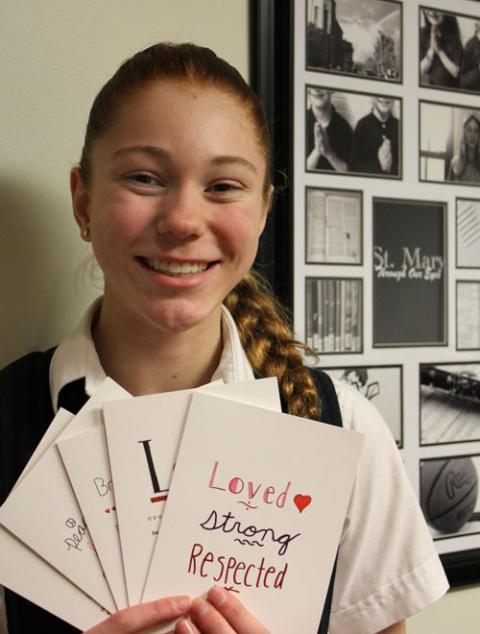 St. Mary
Through Our Eyes
Loved
Strong
Respected